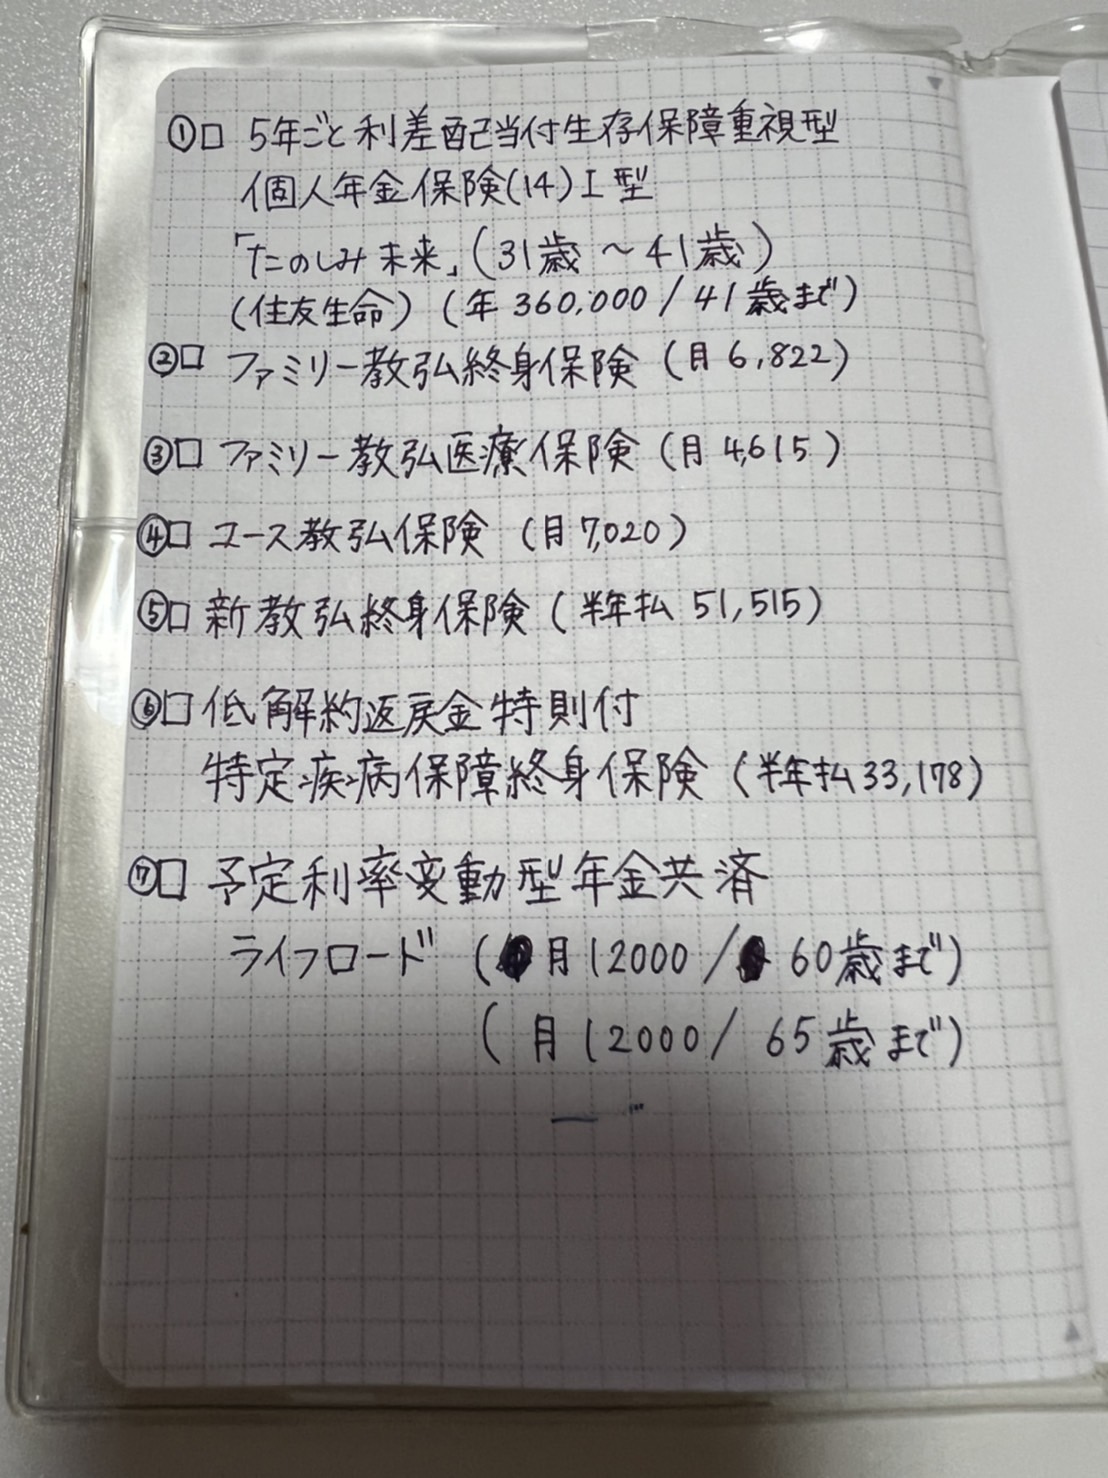 ①□ 5年ごと利差配当付生存保障重視型
個人年金保険(14)I型
「たのしみ未来」(31歳～41歳)
(住友生命) (年360,000/41歳まで)
②□ ファミリー教弘終身保険 (月6,822)
③□ ファミリー教弘医療保険 (月4,615)
④□ ユース教弘保険 (月7,020)
⑤□ 新教弘終身保険 (半年払51,515)
⑥□ 低解約返戻金特則付
特定疾病保障終身保険 (半年払33,178)
⑦□ 予定利率変動型年金共済
ライフロード (月12000/60歳まで)
(月12000/65歳まで)